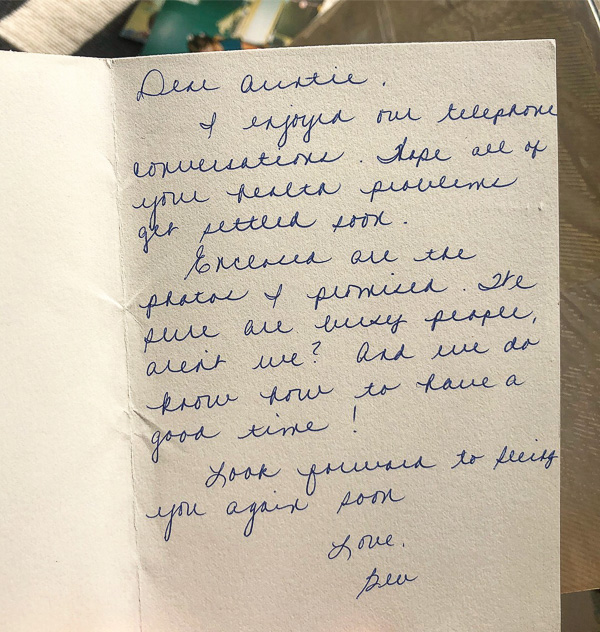 Dear Auntie,
I enjoyed our telephone
conversations. Hope all of
your health problems
get settled soon.
Enclosed are the
photos I promised. We
sure are busy people,
aren't we? And we do
know how to have a
good time!
Look forward to seeing
you again soon
Love,
Bev